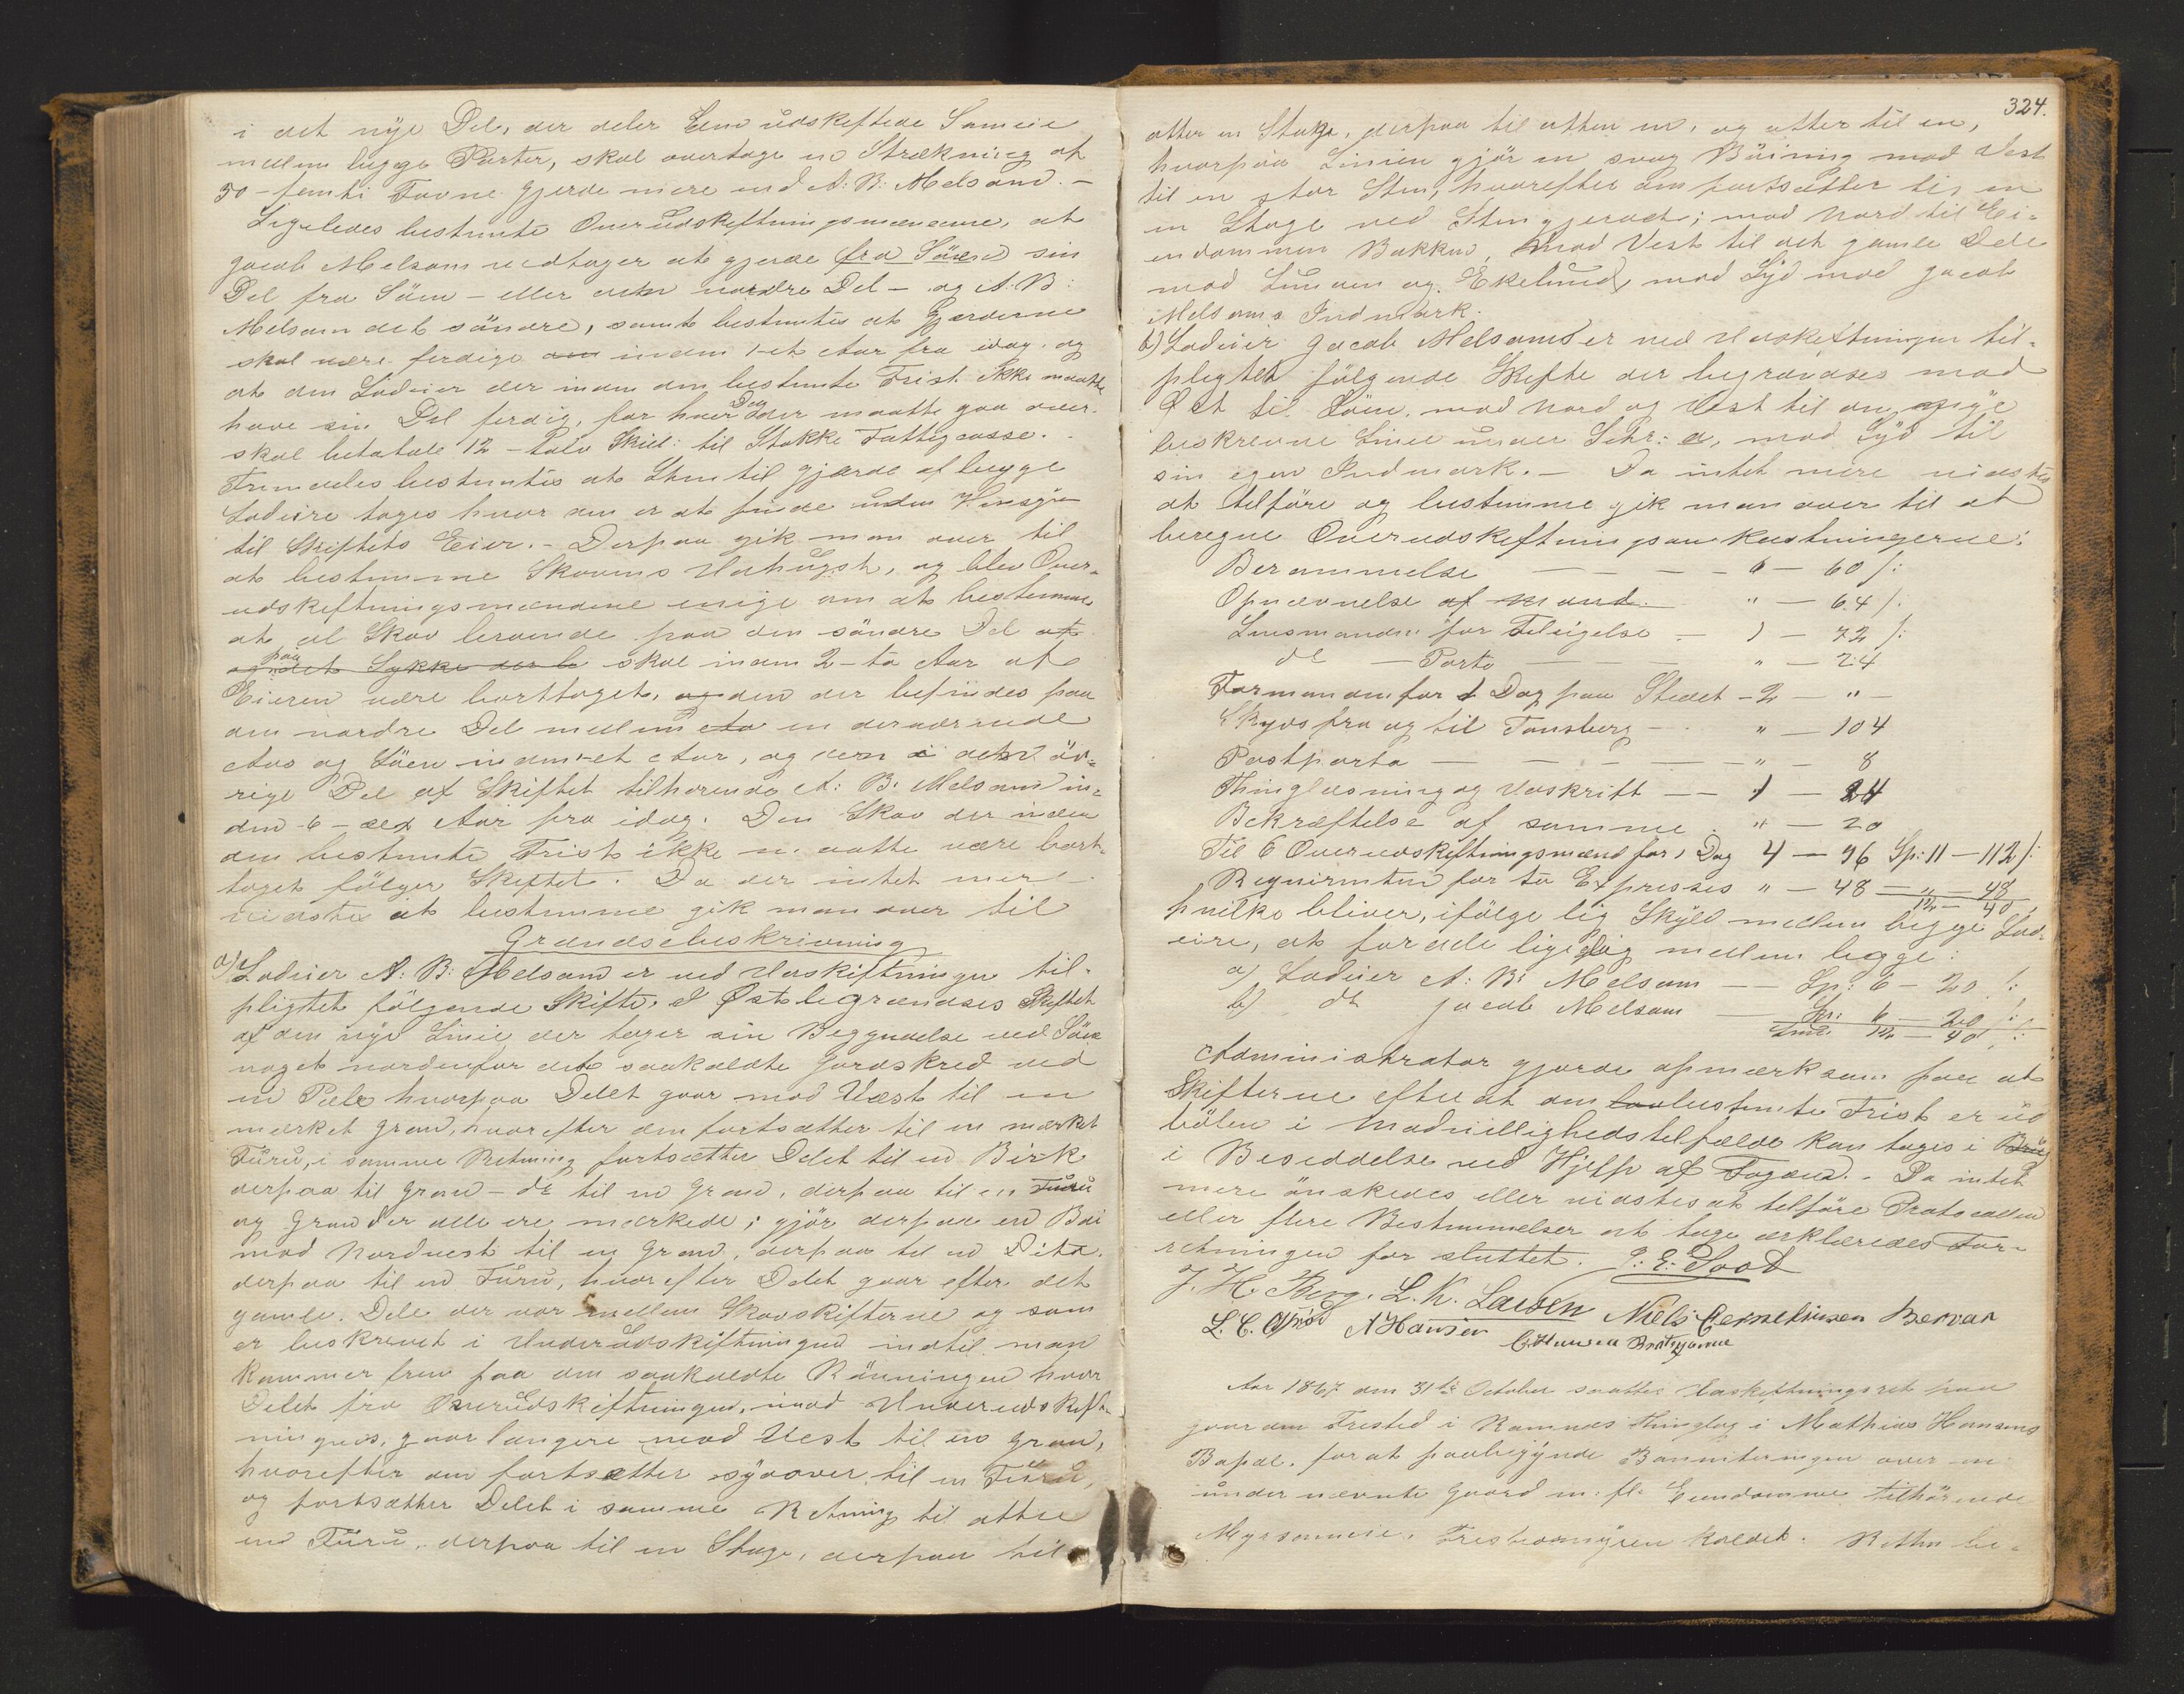 i det nye Del, der deler den udskiftede Sameie
mellem begge Parter, skal overtage en Strækning af
50 - femti Favne Gjerde mere end A: B: Melsom. -
Ligeledes bestemte Overudskiftningsmændene, at
Jacob Melsom vedtager at gjerde fra Søen sin
Del fra Søen - eller den nordre Del - og A. B:
Melsom det søndre, samt bestemtes at Gjerderne
skal være ferdige inden 1-et Aar fra idag, og
at den Lodeier der inden den bestemte Frist ikke maatte
have sin Del ferdig, for hver Dag der maatte gaa over
skal betale 12 - tolv Skill: til Stokke Fattigcasse. -
Fremdeles bestemtes at Sten til Gjærde af begge
Lodeiere tages hvor den er at finde uden Hensyn
til Skiftets Eier. - Derpaa gik man over til
at bestemme Skovens Udhugst, og blev Over-
udskiftningsmændene enige om at bestemme
at al Skov beroende paa den søndre Del at
og paa det Stykke der be skal inden 2 - to Aar af
Eieren være borttaget, og den der befindes paa
den nordre Del mellem en derværende
Aas og Søen inden 1-et Aar, og den i den øv-
rige Del af Skiftet tilhørende A: B: Melsom in-
den 6 - sex Aar fra idag. Den Skov der inden
den bestemte Frist ikke maatte være bort-
taget følger Skiftet. Da der intet mere
vidstes at bestemme gik man over til
Grændsebeskrivning
a) Lodeier A: B: Melsom er ved Udskiftningen til-
pligtet følgende Skifte: I Øst begrændses Skiftet
af den nye Linie der tager sin Begyndelse ved Søen
noget nordenfor det saakaldte Jordskred ved
en Pæle hvorpaa Delet gaar mod Vest til en
mærket Gran, hvorefter den fortsætter til en mærket
Furu, i samme Retning fortsætter Delet til en Birk
derpaa til Gran - do til en Gran, derpaa til en Furu
og Gran der alle ere mærkede; gjør derpaa en Bøi
mod Nordvest til en Gran, derpaa til en Dito.
derpaa til en Furu, hvorefter Delet gaar efter det
gamle Dele der var mellem Skovskifterne og som
er beskrevet i Underudskiftningen indtil man
kommer frem paa den saakaldte Rønningen hvor
Delet fra Overudskiftningen, imod Underudskift-
ningens, gaar længere mod Vest til en Gran,
hvorefter den fortsætter sydover til en Furu,
og fortsætter Delet i samme Retning til atter
en Furu, derpaa til en Stage, derpaa til
324.
atter en Stage, derpaa til atter en, og atter til en,
hvorpaa Linien gjør en svag Bøining mod Vest
til en stor Sten, hvorefter den fortsætter til en
en Stage ved Stengjerdet; mod Nord til Ei-
endommen Bakken, mod Vest til det gamle Dele
mod Lunden og Ekelund, mod Syd mod Jacob
Melsoms Indmark.
b) Lodeier Jacob Melsom er ved Udskiftningen til-
pligtet følgende Skifte der begrændses mod
Øst til Søen, mod Nord og Vest til den nye
beskrevne Linie under Litr: a, mod Syd til
sin egen Indmark. - Da intet mere vidstes
at tilføre og bestemme gik man over til at
beregne Overudskiftningsomkostningerne:
Berammelse — — — " — 60 /:
Opnævnelse af Mænd — " — 64 /:
Lensmanden for Tilsigelse — 1 — 72 /:
do — Porto — — " — 24
Formanden for 1 Dag paa Stedet - 2 — " —
Skyds fra og til Tønsberg — " — 104
Postporto — — — — " — 8
Thinglæsning og Udskrift — 1 — 24
Bekræftelse af samme " — 20
Til 6 Overudskiftningsmænd for 1 Dag 4 — 96 Sp: 11 — 112 /:
Reqvirenten for to Expresses " — 48 — " — 48
12 — 40
hvilke bliver, ifølge lig Skyld mellem begge Lod-
eiere, at fordele ligelig mellem begge:
a) Lodeier A: B: Melsom — — Sp: 6 — 20 /:
b) do Jacob Melsom — Sp: 6 — 20 /:
12 — 40 /:
Administrator gjorde opmærksom paa at
Skifterne efter at den lovbestemte Frist er ud
løben i Modvillighedstilfælde kan tages i Brug
i Besiddelse ved Hjelp af Fogden. - Da intet
mere ønskedes eller vidstes at tilføre Protocollen
eller flere Bestemmelser at tage erklæredes For-
retningen for sluttet. P: E: Sood
J. H. Berg. L. K. Larsen Niels Corneliusen Bervar
L. C. A. Hansen C. Hansen
Aar 1867 den 31te October sattes Udskiftningsret paa
Gaarden Trested i Ramnæs Thinglag i Mathias Hansens
Bopæl, for at paabegynde Bonniteringen over en
under nævnte Gaard m: fl: Eiendomme tilhørende
Myrsameie, Trestedmyren kaldet. Retten be-